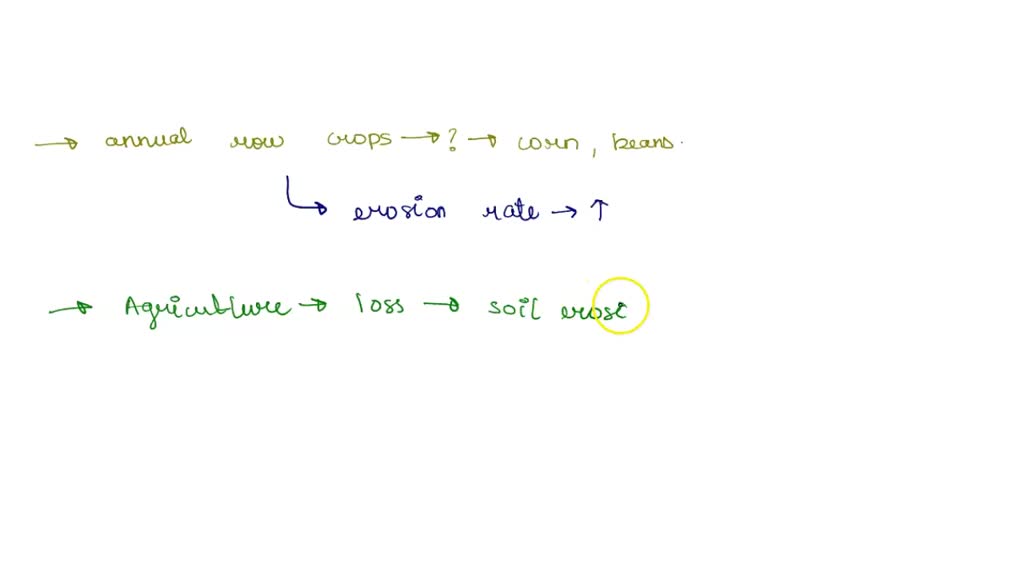 → annual row crops → ? → corn, beans.
↳ erosion rate → ↑
→ Agriculture → loss → soil erosi